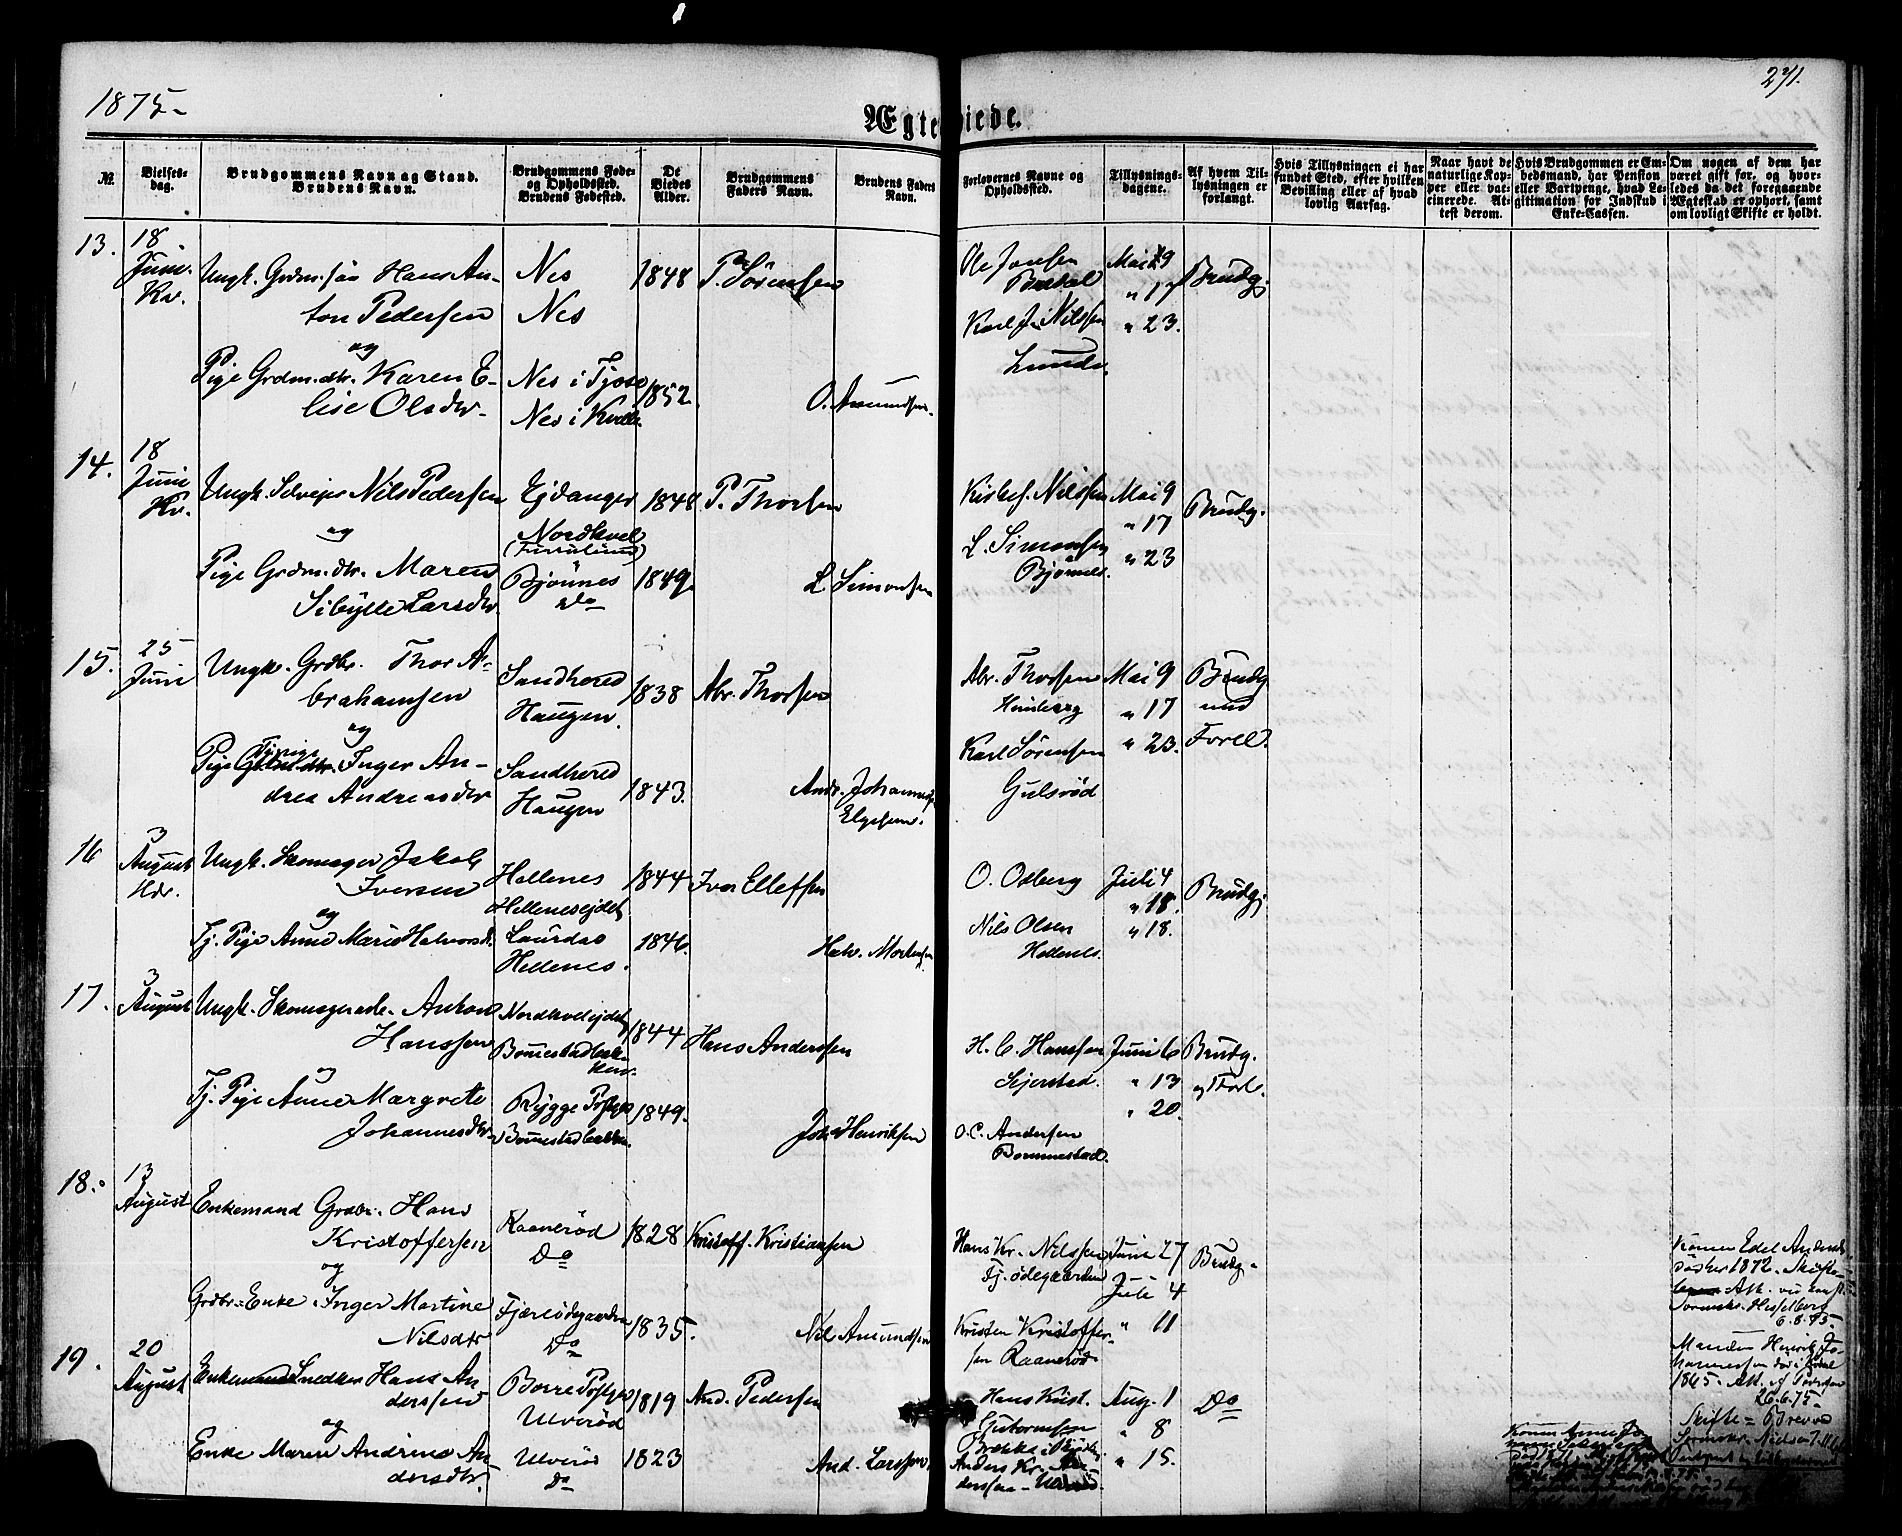 1875-
271.
Ægteviede.
№
Vielses-
dag.
Brudgommens Navn og Stand.
Brudens Navn.
Brudgommens Føde-
og Opholdssted.
Brudens Fødested.
De
Viedes
Alder.
Brudgommens
Faders Navn.
Brudens Faders
Navn.
Forlovernes Navne og
Opholdssted.
Tillysnings-
dagene.
Af hvem Til-
lysningen er
forlangt.
Hvis Tillysningen ei har
fundet Sted, efter hvilken
Bevilling eller af hvad
lovlig Aarsag.
Naar havt de
naturlige Kop-
per eller vac-
cinerede. At-
test derom.
Hvis Brudgommen er Em-
bedsmand, har Pension
eller Vartpenge, hvad Le-
gitimation for Indskud i
Enke-Cassen.
Om nogen af dem har
været gift før, og hvor-
ledes da det foregaaende
Ægteskab er ophørt, samt
om lovligt Skifte er holdt.
13.
18
Juni.
Kv.
Ungk. Grdm.søn Hans An-
ton Pedersen
og
Pige Grdm.dtr. Karen E-
lise Olsdtr.
Nes
Nes
Nes i Tjose
Nes i Kvelle
1848
1852.
P. Sörensen
O. Amundsen.
Ole Jonsen
Karl J. Nilssen
Lunde.
Mai 9
" 17
" 23.
Brudg.
14.
18
Juni
Kv.
Ungk. Selveier Nils Pedersen
og
Pige Grdm.dtr. Maren
Sibylle Larsdtr.
Ejdanger
Nordkvel
Bjönnes
Do
1848
1849.
P. Thorsen
L. Simonsen
Nilssen
L. Simonsen
Bjönnes.
Mai 9
" 17
" 23
Brudg.
15.
25
Juni
Ungk. Grdbr. Thor A-
brahamsen
og
Pige Inger An-
drea Andreasdtr
Sandhered
Haugen.
Sandhered
Haugen
1838
1843.
Abr. Thorsen
Andr. Johannes
Abr. Thorsen
Himberg
Karl Sörensen
Gulsröd
Mai 9
" 17
" 23.
Brudg.
Forll.
16
3
August
Hdr.
Ungk. Skomager Jakob
Iversen
og
Tj. Pige Anne Marie Halvorsd.
Hellenes
Hellenesejdet
Laurdal
Hellenes.
1844
1846.
Iver Ellefsen
Halv. Mortensen
O. Odberg
Nils Olsen
Hellenes.
Juli 4
" 18.
" 18.
Brudg.
17.
3
August
Ungk. Skomagersv. Anton
Hanssen
og
Tj. Pige Anne Margrete
Johannesdtr.
Nordkvelejdet
Rygge Pstgj.
1844
1849.
Hans Anderssen
Joh. Henriksen
H. C. Hanssen
Sejerstad.
O. C. Andersen
Bommestad.
Juni 6
" 13
" 20.
Brudg.
og Forl.
18.
13
August
Enkemand Grdbr. Hans
Kristoffersen
og
Grdbr.-Enke Inger Martine
Nilsdtr
Raaneröd
Do
Fjæreödegaarden
Do
1828
1835.
Kristoff. Kristiansen
Nil. Amundsen
Hans Kr. Nilssen
Fj. ödegaarden
Kristen Kristoffer-
sen Raaneröd
Juni 27
Juli 4
" 11
Brudg.
Konen Edel Anders
6.8.75.
19.
20
August
Enkemand Snedker Hans An-
derssen
og
Enke Maren Andrine An-
dersdtr.
Borre Pstgj.
Ulveröd
Ulveröd
Do
1819
1823
And. Pedersen
And. Larssen
Hans Krist.
Guttormsen
Anders Kr. An-
derssen Ulveröd.
Aug. 1
" 8
" 15.
Do
Manden Henrik Jo-
hannessen död i
1865. Att. af
26.6.75.
Skifte = Brevv